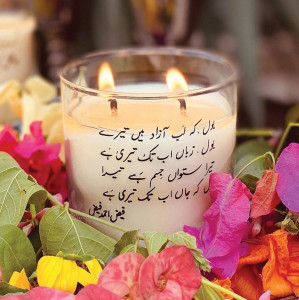 بول، کہ لب آزاد ہیں تیرے
بول، زباں اب تک تیری ہے
تیرا ستواں جسم ہے تیرا
کہ جاں اب تک تیری ہے
فیض احمد فیض